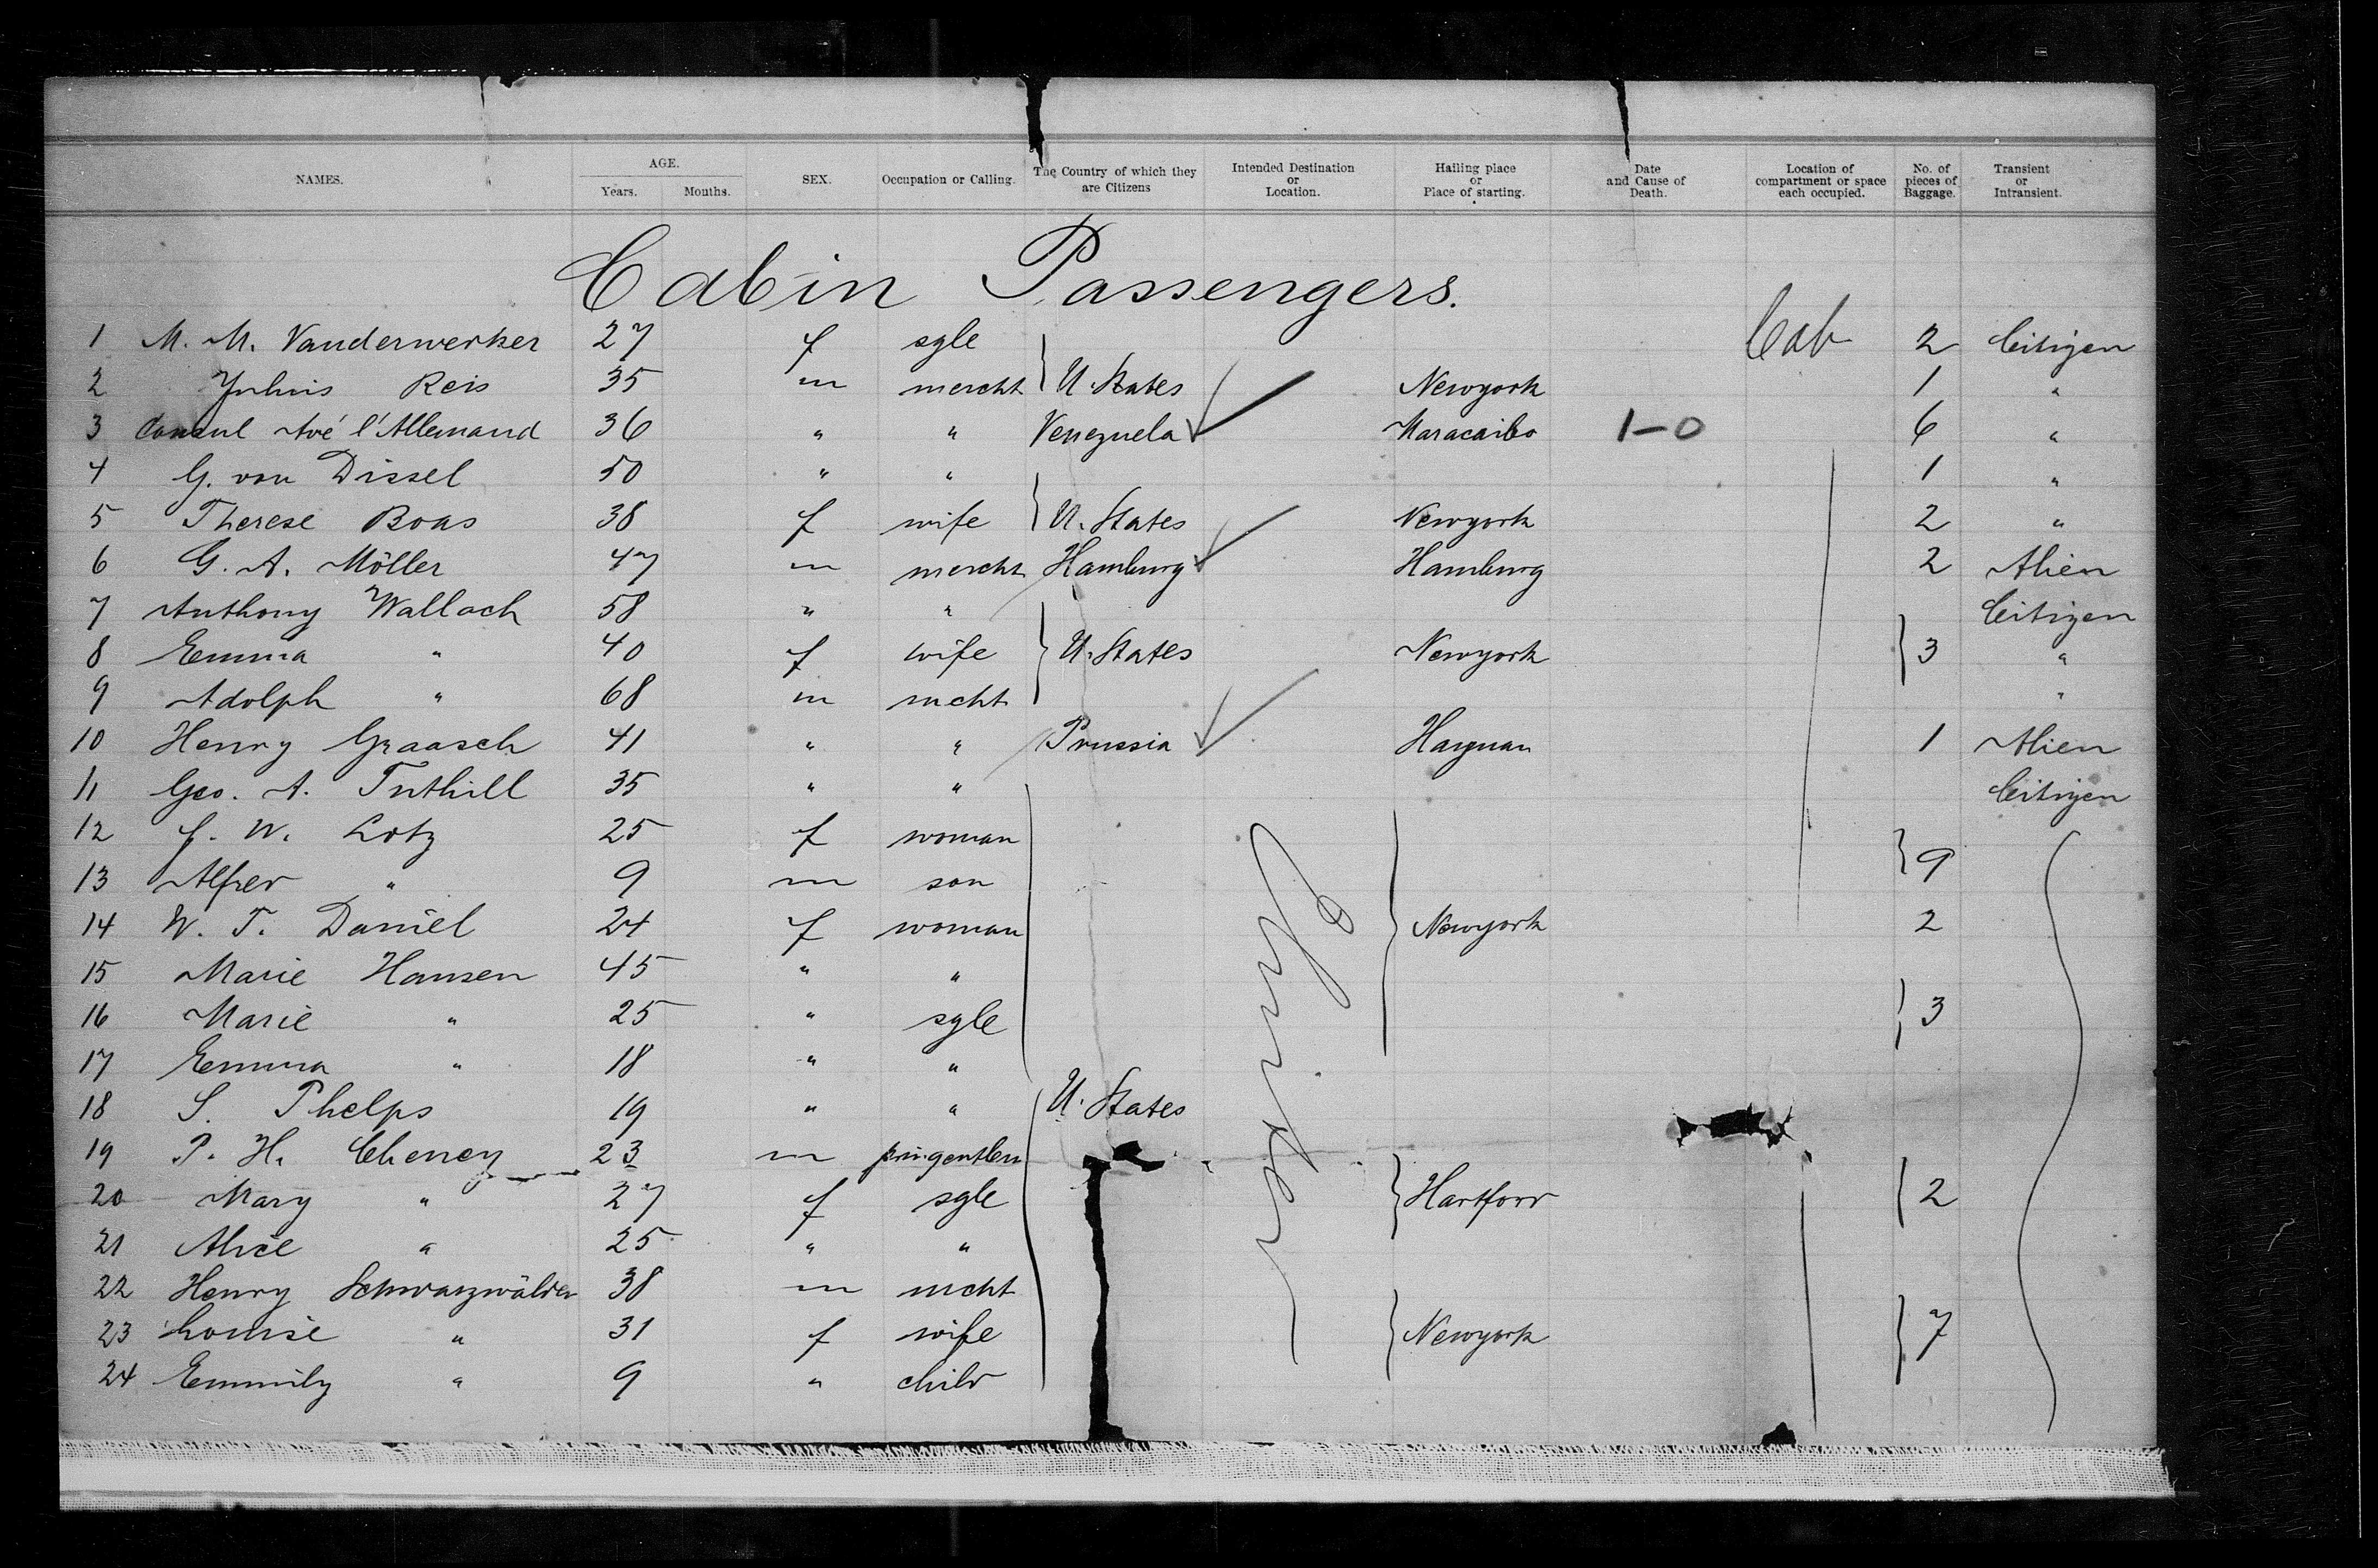 NAMES. AGE. Years. Months. SEX. Occupation or Calling. The Country of which they are Citizens Intended Destination or Location. Hailing place or Place of starting. Date and Cause of Death. Location of compartment or space each occupied. No. of pieces of Baggage. Transient or Intransient.
Cabin Passengers.
1 M. M. Vanderwerker 27 f sgle Cab 2 Citizen
2 Julius Reis 35 m mercht U. States Newyork 1 "
3 Consul Avé l'Allemand 36 " " Venezuela Maracaibo 1-0 6 "
4 G. von Dissel 50 " " 1 "
5 Therese Boas 38 f wife U. States Newyork 2 "
6 G. A. Möller 47 m mercht Hamburg Hamburg 2 Alien
7 Anthony Wallach 58 " " Citizen
8 Emma " 40 f wife U. States Newyork 3 "
9 Adolph " 68 m mcht "
10 Henry Graasch 41 " " Prussia 1 Alien
11 Geo. A. Tuthill 35 " " Citizen
12 J. W. Lotz 25 f woman 9
13 Alfred " 9 m son
14 W. T. Daniel 24 f woman Newyork 2
15 Marie Hansen 45 " "
16 Marie " 25 " sgle 3
17 Emma " 18 " "
18 S. Phelps 19 " " U. States
19 P. H. Cheney 23 m privgentlem
20 Mary " 27 f sgle Hartford 2
21 Alice " 25 " "
22 Henry Schwarzwälder 38 m mcht
23 Louise " 31 f wife Newyork 7
24 Emmily " 9 " child